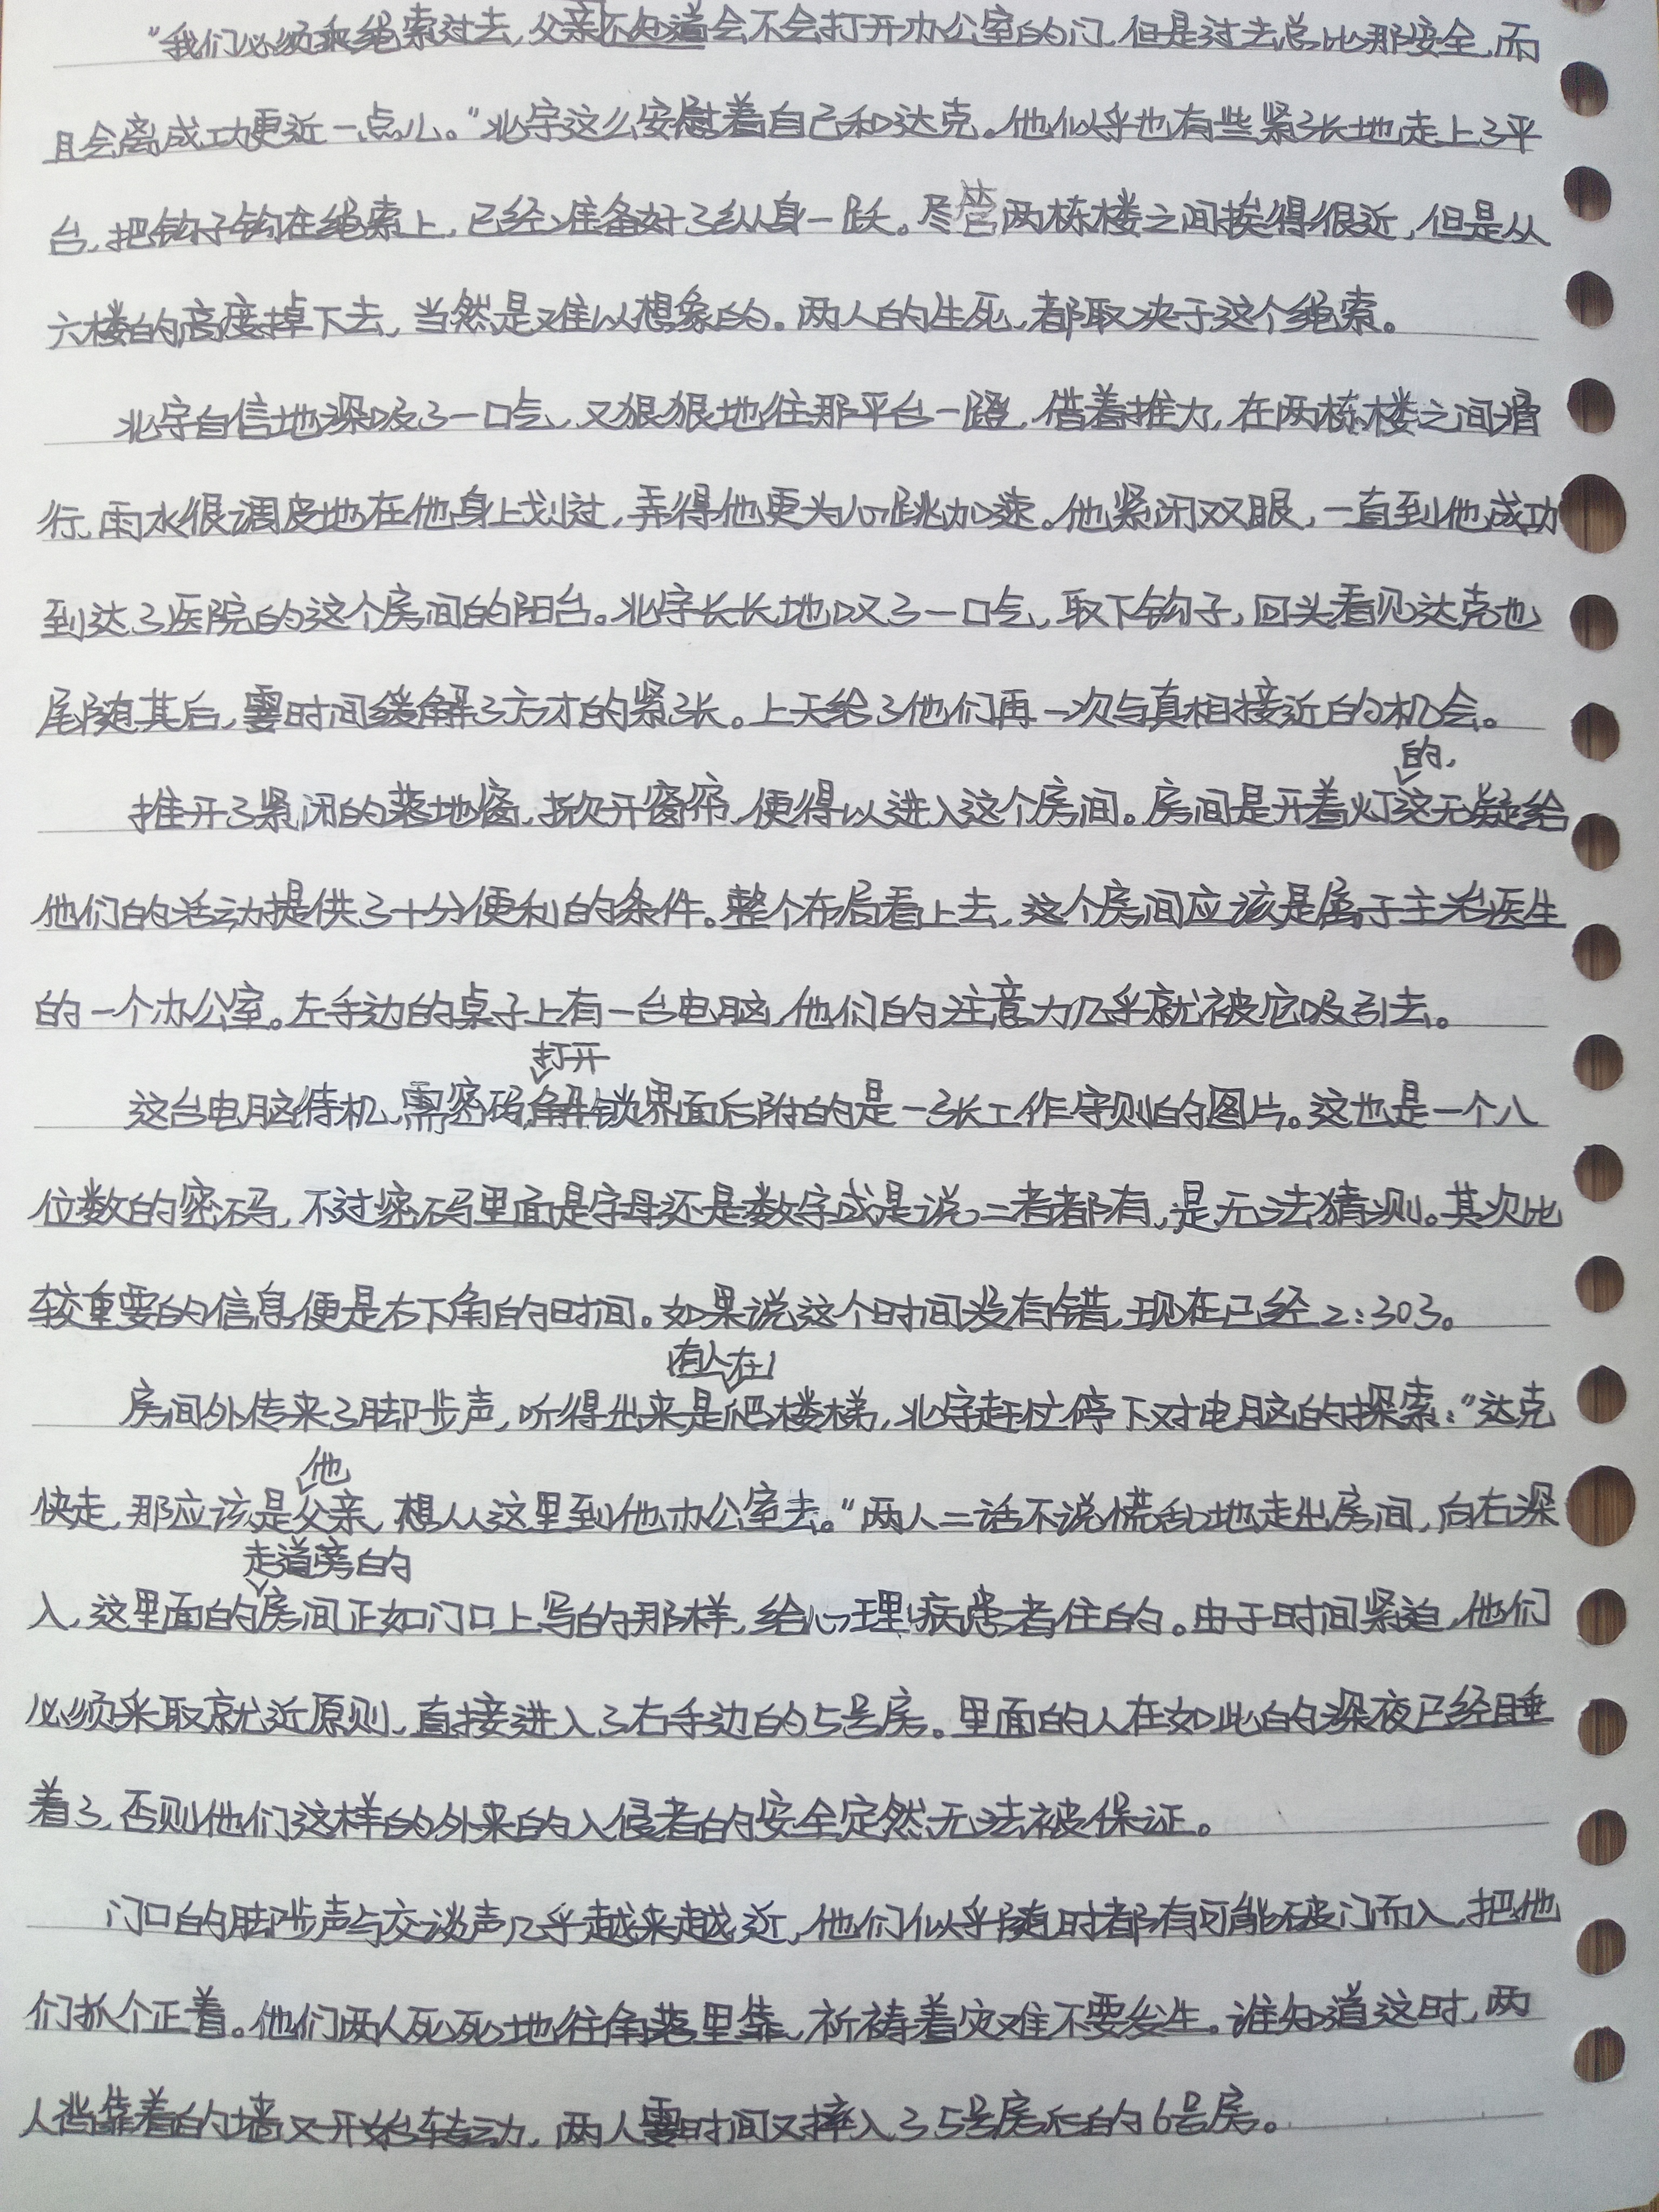 “我们必须乘绳索过去，父亲还不知道会不会打开办公室的门，但是过去总比那安全，而
且会离成功更近一点儿。”北宇这么安慰着自己和达克。他似乎也有些紧张地走上了平
台，把钩子钩在绳索上，已经准备好了纵身一跃。尽管两栋楼之间挨得很近，但是从
六楼的高度掉下去，当然是难以想象的。两人的生死，都取决于这个绳索。
北宇自信地深吸了一口气，又狠狠地往那平台一蹬，借着推力，在两栋楼之间滑
行，雨水很调皮地在他身上划过，弄得他更为心跳加速。他紧闭双眼，一直到他成功
到达了医院的这个房间的阳台。北宇长长地叹了一口气，取下钩子，回头看见达克也
尾随其后，霎时间缓解了方才的紧张。上天给了他们再一次与真相接近的机会。
的，
推开了紧闭的落地窗，掀开窗帘，便得以进入这个房间。房间是开着灯这无疑给
他们的活动提供了十分便利的条件。整个布局看上去，这个房间应该是属于主治医生
的一个办公室。左手边的桌子上有一台电脑，他们的注意力几乎就被它吸引去。
打开
这台电脑待机，需密码，解锁界面后附的是一张工作守则的图片。这也是一个八
位数的密码，不过密码里面是字母还是数字或是说二者都有，是无法猜测。其次比
较重要的信息便是右下角的时间。如果说这个时间没有错，现在已经2:30了。
有人在
房间外传来了脚步声，听得出来是爬楼梯，北宇赶忙停下对电脑的探索：“达克
他
快走，那应该是父亲，想从这里到他办公室去。”两人二话不说慌乱地走出房间，向右深
走道旁的
入，这里面的房间正如门口上写的那样，给心理病患者住的。由于时间紧迫，他们
必须采取就近原则，直接进入了右手边的5号房。里面的人在如此的深夜已经睡
着了，否则他们这样的外来的入侵者的安全定然无法被保证。
门口的脚步声与交谈声几乎越来越近，他们似乎随时都有可能破门而入，把他
们抓个正着。他们两人死死地往角落里靠，祈祷着灾难不要发生。谁知道这时，两
人背靠着的墙又开始转动，两人霎时间又摔入了5号房后的6号房。